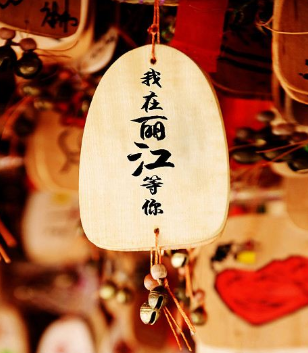 我在丽江等你